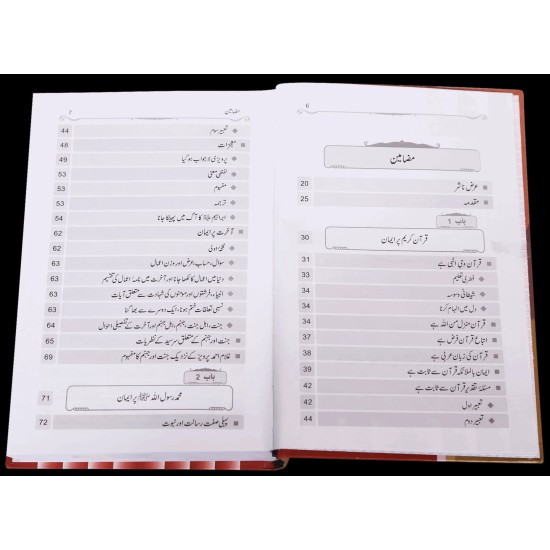 6
مضامین
عرض ناشر 20
مقدمہ 25
باب 1
قرآن کریم پر ایمان 30
قرآن وحی الٰہی ہے 31
فطری تعلیم 33
شیطانی وسوسہ 34
دل میں الہام کرنا 34
قرآن منزل من اللہ ہے 34
اتباع قرآن فرض ہے 35
قرآن کی زبان عربی ہے 41
ایمان بالملائکہ قرآن سے ثابت ہے 42
مسئلہ تقدیر قرآن سے ثابت ہے 42
تعبیر اول 42
تعبیر دوم 44
مضامین 7
تعبیر سوم 44
معجزات 48
پرویزی لاجواب ہو گیا 49
لفظی معنی 53
مفہوم 53
ترجمہ 53
ابراہیم علیہ السلام کا آگ میں پھینکا جانا 54
آخرت پر ایمان 62
62
سوال، حساب، عرض اور وزن اعمال 63
دنیا میں اعمال کا لکھا جانا اور آخرت میں نامہ اعمال کی تقسیم 63
انبیاء، فرشتوں اور مومنوں کی شہادت سے متعلق آیات 63
نسبی تعلقات ختم ہونا، ایک دوسرے سے بھاگنا 63
جنت، اہل جنت، جہنم، اہل جہنم اور آخرت کے تفصیلی احوال 64
جنت اور جہنم کے متعلق سرسید کے نظریات 65
غلام احمد پرویز کے نزدیک جنت اور جہنم کا مفہوم 69
باب 2
محمد رسول اللہ ﷺ پر ایمان 71
پہلی صفت رسالت اور نبوت 72